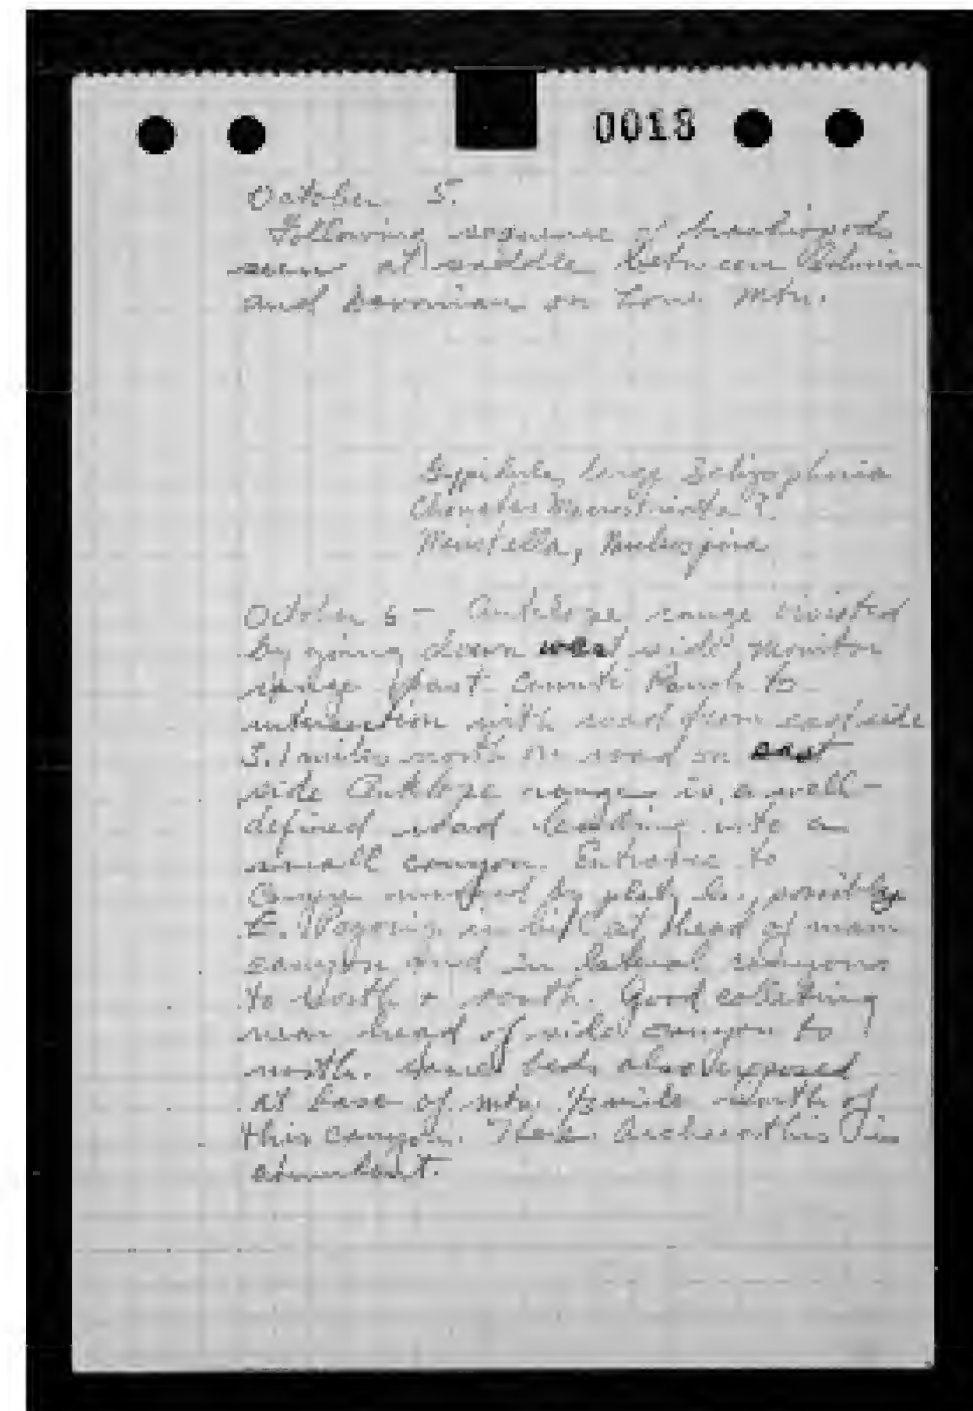 0018
October 5.
Following sequence of brachiopods
seen at saddle between Silurian
and Devonian on Lone Mtn.
Gypidula, large Schizophoria
Chonetes ?
Meristella,
October 6 - Antelope range visited
by going down west side Monitor
range past Ranch to
intersection with road from east side
3.1 miles north on road on east
side Antelope range is a well-
defined road leading into a
small canyon. Entrance to
Canyon by platy ls, possibly
E. Pogonip in at head of main
canyon and in lateral canyons
to north & south. Good collecting
near head of side canyon to
north. Same beds also exposed
at base of mtn. mile north of
this canyon. Here Archaeorthis is
abundant.